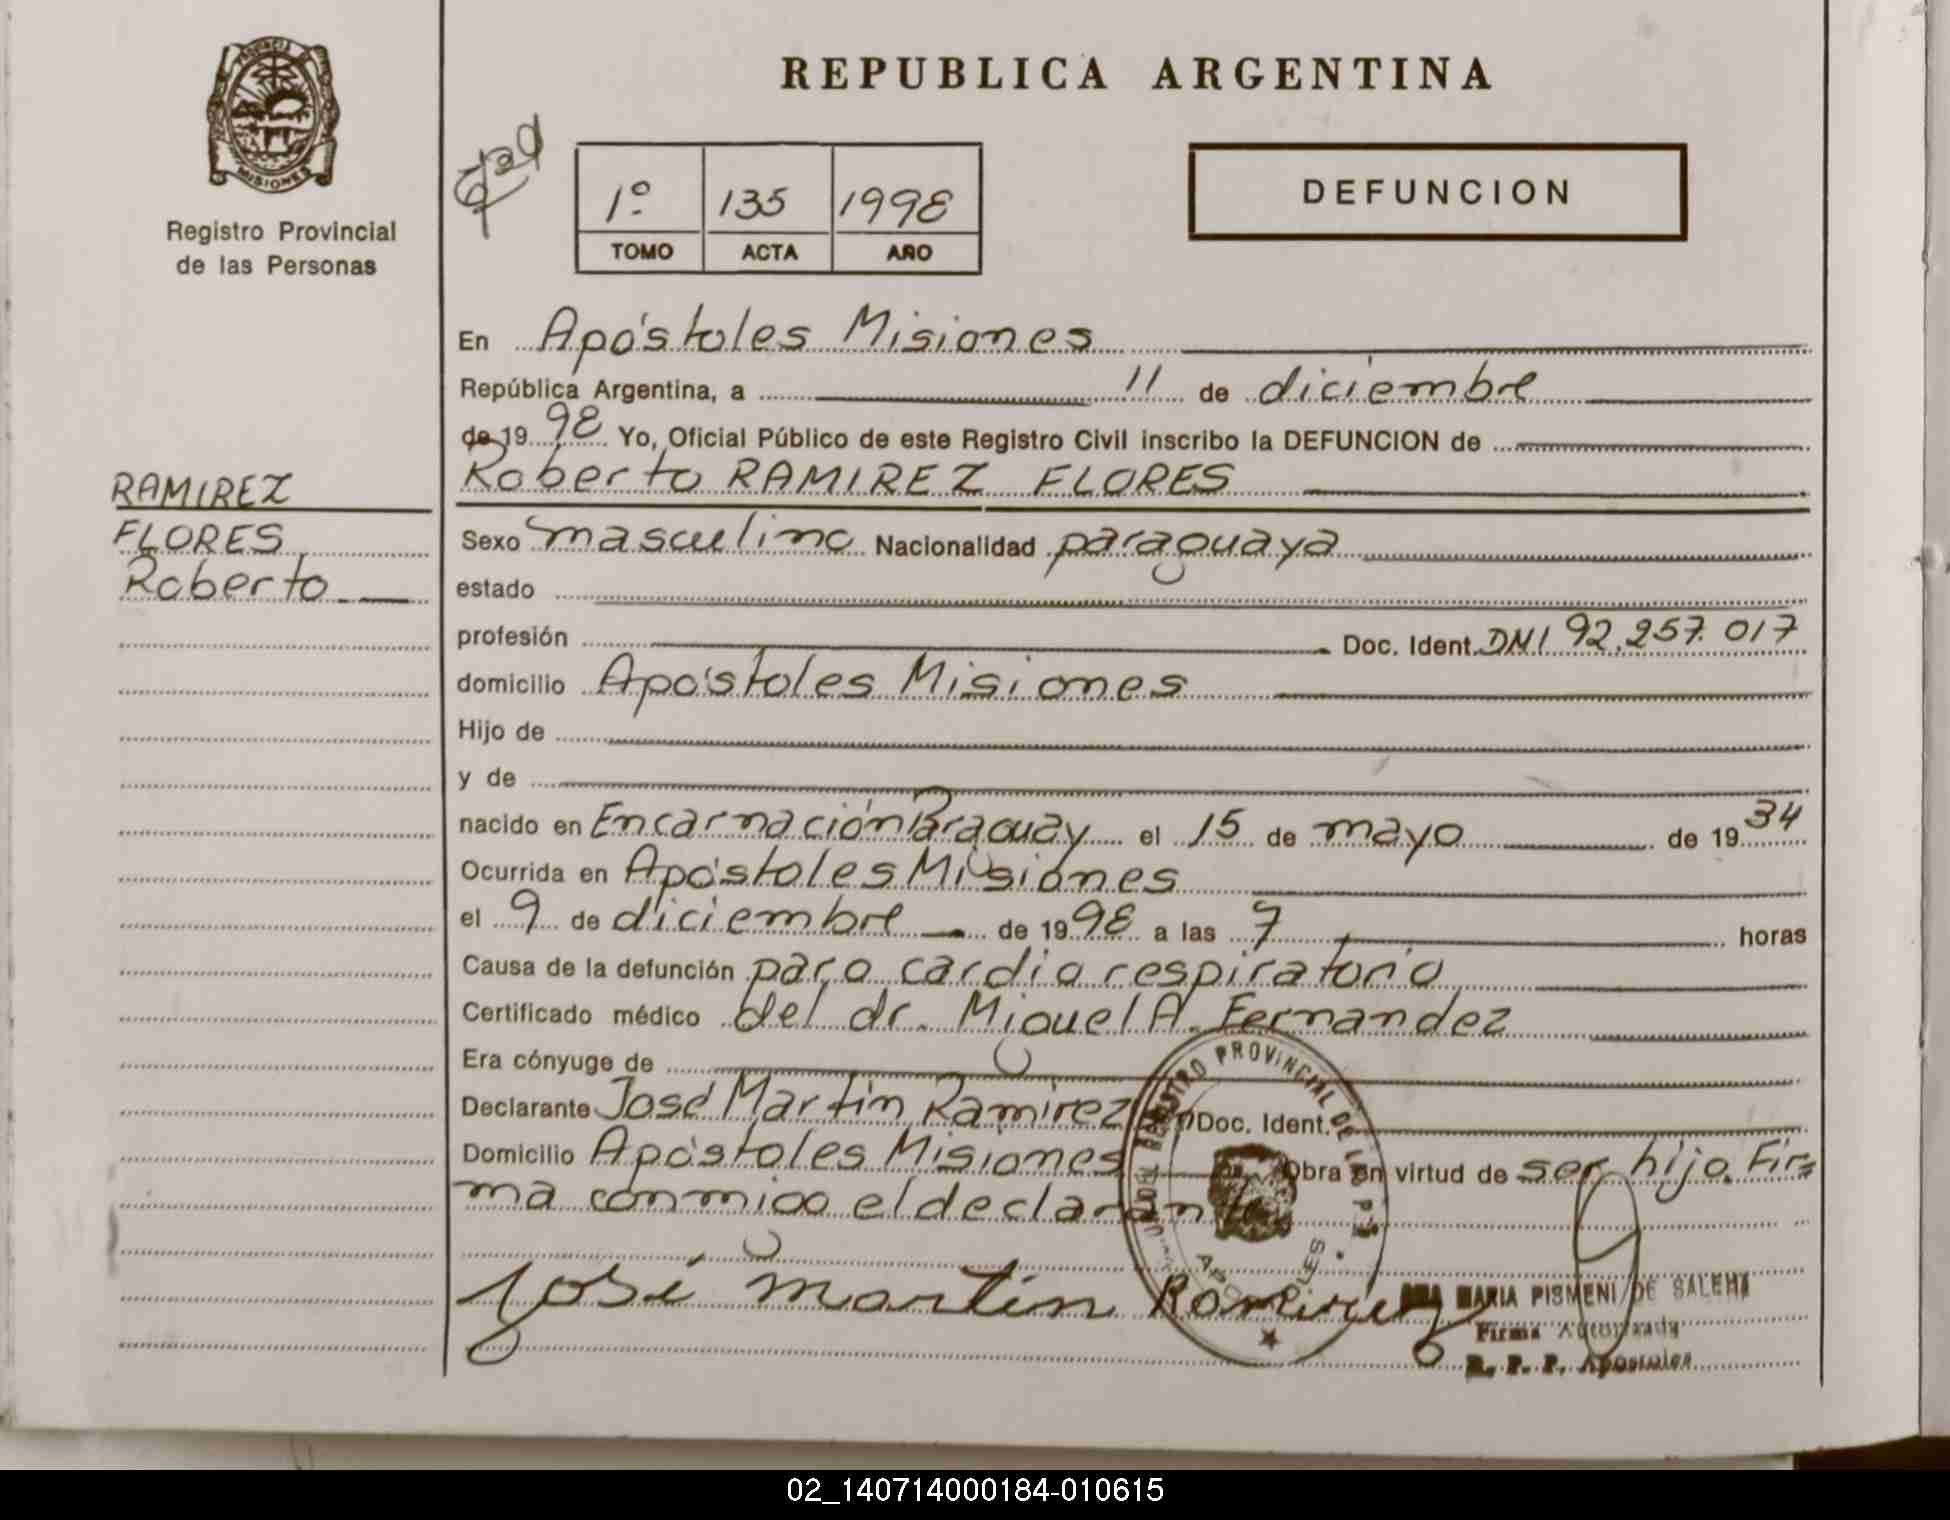 PROVINCIA
MISIONES
Registro Provincial
de las Personas
REPUBLICA ARGENTINA
1º 135 1998
TOMO ACTA AÑO
DEFUNCION
En Apóstoles Misiones
República Argentina, a 11 de diciembre
de 19 98 Yo, Oficial Público de este Registro Civil inscribo la DEFUNCION de
Roberto RAMIREZ FLORES
RAMIREZ
FLORES
Roberto
Sexo masculino Nacionalidad paraguaya
estado
profesión Doc. Ident. DNI 92.257.017
domicilio Apóstoles Misiones
Hijo de
y de
nacido en Encarnación Paraguay el 15 de mayo de 19 34
Ocurrida en Apóstoles Misiones
el 9 de diciembre de 19 98 a las 7 horas
Causa de la defunción paro cardio respiratorio
Certificado médico del dr. Miguel A. Fernandez
Era cónyuge de
Declarante José Martín Ramirez Doc. Ident.
Domicilio Apóstoles Misiones Obra en virtud de ser hijo. Fir=
ma conmigo el declarante
REGISTRO PROVINCIAL DE LAS
APOSTOLES
José Martín Ramirez
MARIA PISMENI DE SALEHA
Firma Autorizada
R. P. P. Apostoles
02_140714000184-010615